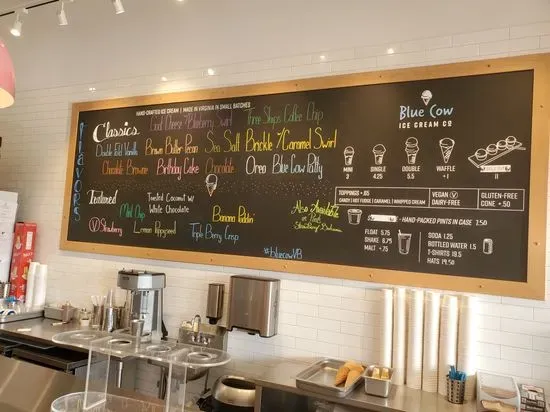 HAND-CRAFTED ICE CREAM | MADE IN VIRGINIA IN SMALL BATCHES
FLAVORS
Classics
Goat Cheese Blueberry Swirl
Three Ships Coffee Chip
Double Fold Vanilla
Brown Butter Pecan
Sea Salt Brickle w/Caramel Swirl
Chocolate Brownie
Birthday Cake
Chocolate
Oreo
Blue Cow Patty
Featured
Toasted Coconut w/
White Chocolate
Mint Chip
Banana Puddin'
Strawberry
Lemon Poppyseed
Triple Berry Crisp
Also Available
in Pints
Strawberry
Blue Cow
ICE CREAM CO
MINI
3
SINGLE
4.25
DOUBLE
5.5
WAFFLE
+1
TOPPINGS +.65
CANDY | HOT FUDGE | CARAMEL | WHIPPED CREAM
VEGAN V
DAIRY-FREE
GLUTEN-FREE
CONE +.50
HAND-PACKED PINTS IN CASE 7.50
FLOAT 5.75
SHAKE 6.75
MALT +.75
SODA 1.25
BOTTLED WATER 1.5
T-SHIRTS 19.5
HATS 19.50
#bluecowVB
Blue
Cow